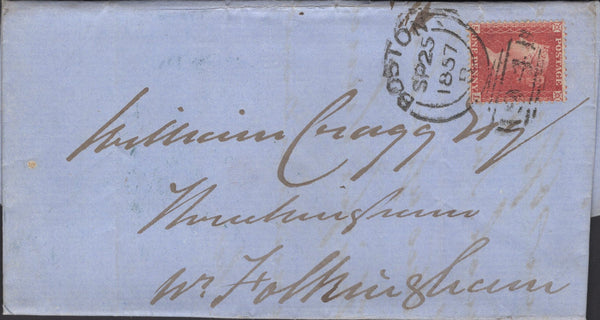 BOSTON
SP 25
1857
B
POSTAGE
ONE PENNY
William Cragg Esq
Threckingham
Nr. Folkingham